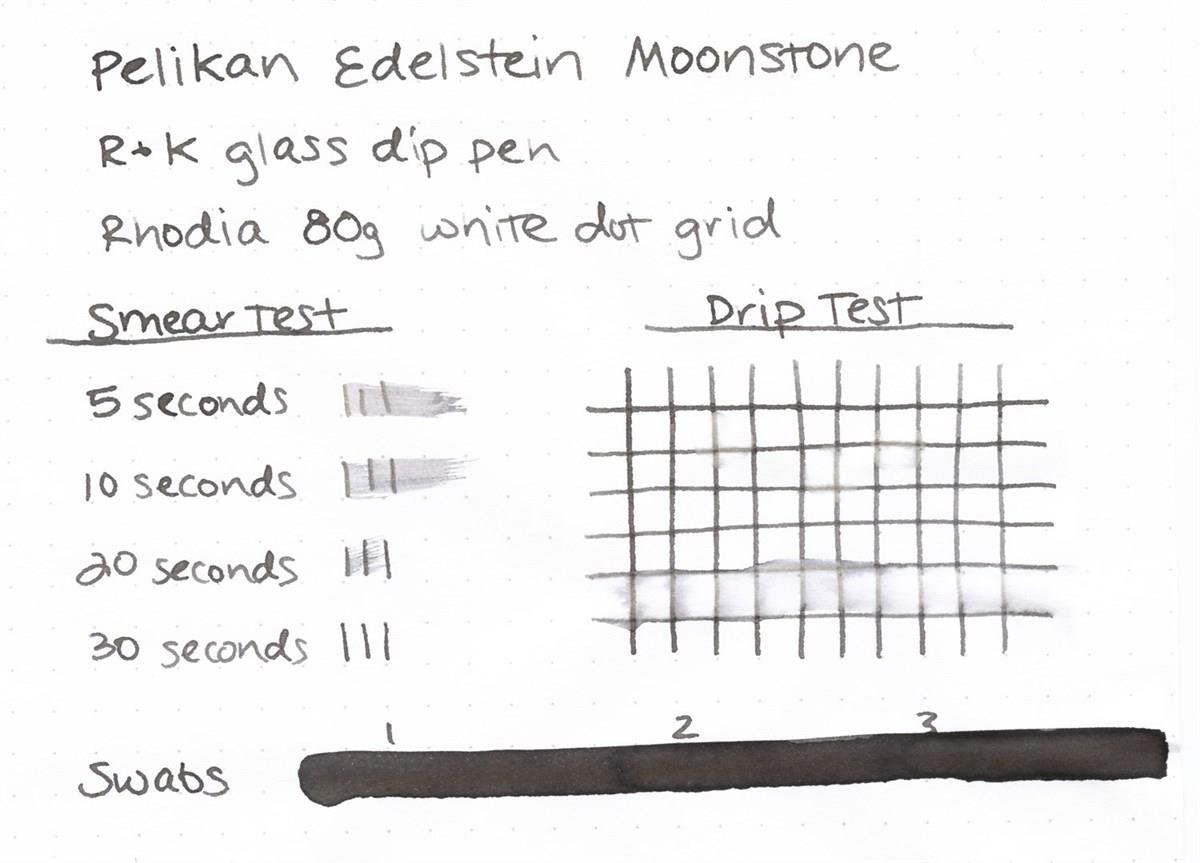 Pelikan Edelstein Moonstone
R+K glass dip pen
Rhodia 80g white dot grid
Smear Test
Drip Test
5 seconds
10 seconds
20 seconds
30 seconds
1 2 3
Swabs